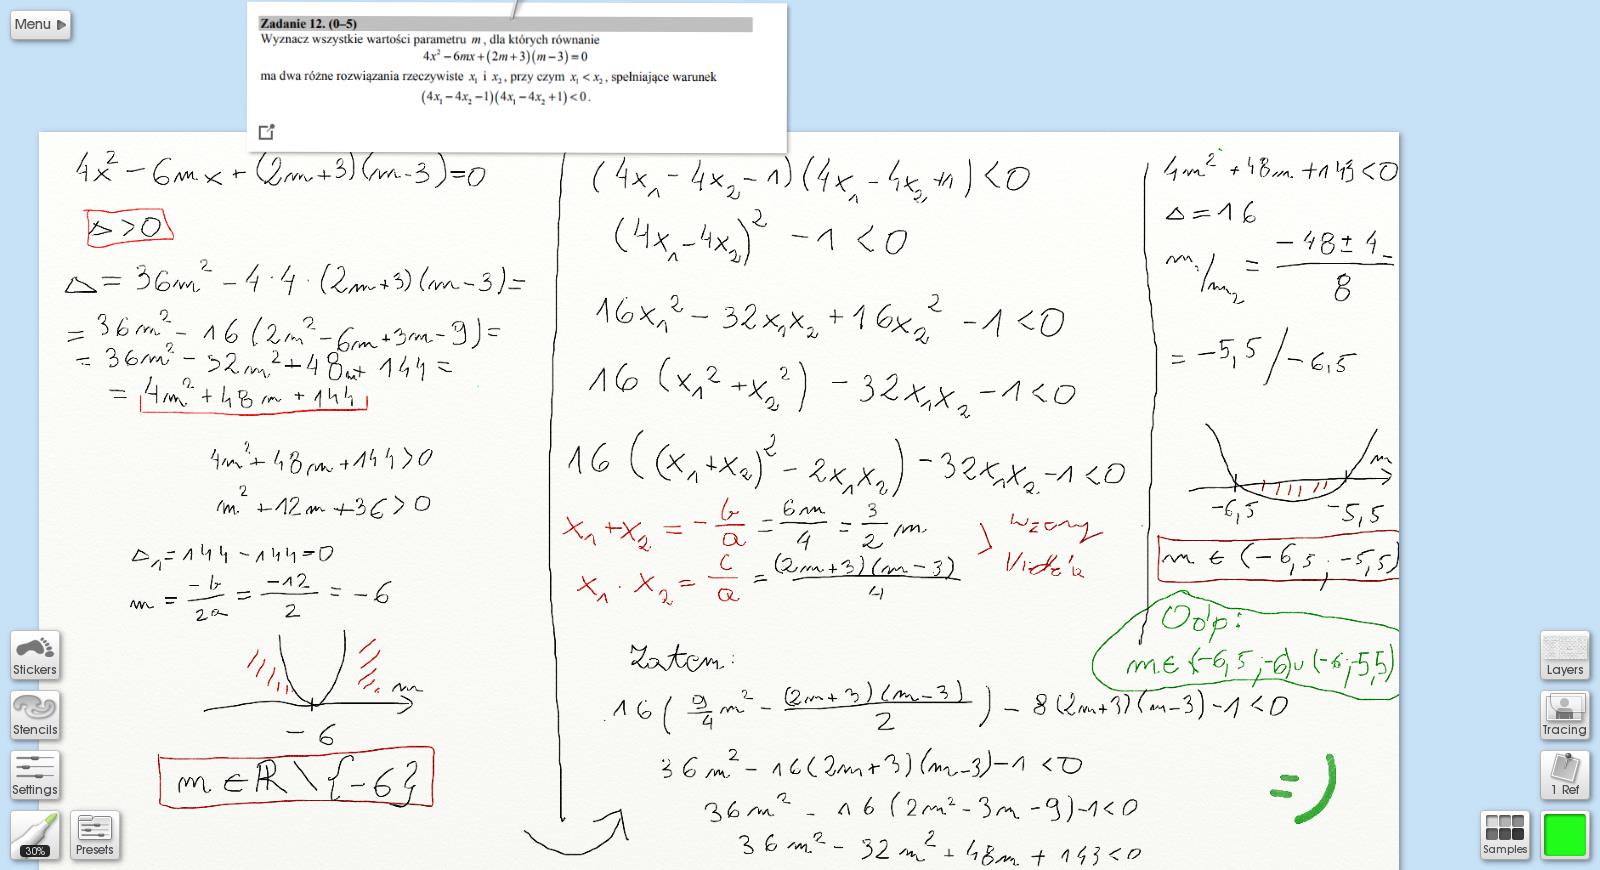 Menu
Zadanie 12. (0–5)
Wyznacz wszystkie wartości parametru m, dla których równanie
4x² − 6mx + (2m+3)(m−3) = 0
ma dwa różne rozwiązania rzeczywiste x₁ i x₂, przy czym x₁ < x₂, spełniające warunek
(4x₁ − 4x₂ − 1)(4x₁ − 4x₂ + 1) < 0.
4x² − 6mx + (2m+3)(m−3) = 0
Δ > 0
Δ = 36m² − 4·4·(2m+3)(m−3) =
= 36m² − 16(2m² − 6m + 3m − 9) =
= 36m² − 32m² + 48m + 144 =
= 4m² + 48m + 144
4m² + 48m + 144 > 0
m² + 12m + 36 > 0
Δ₁ = 144 − 144 = 0
m = −b/2a = −12/2 = −6
m
−6
m ∈ ℝ \ {−6}
(4x₁ − 4x₂ − 1)(4x₁ − 4x₂ + 1) < 0
(4x₁ − 4x₂)² − 1 < 0
16x₁² − 32x₁x₂ + 16x₂² − 1 < 0
16(x₁² + x₂²) − 32x₁x₂ − 1 < 0
16((x₁ + x₂)² − 2x₁x₂) − 32x₁x₂ − 1 < 0
x₁ + x₂ = −b/a = 6m/4 = 3/2 m
x₁ · x₂ = c/a = (2m+3)(m−3)/4
wzory
Viète'a
Zatem:
16(9/4 m² − (2m+3)(m−3)/2) − 8(2m+3)(m−3) − 1 < 0
36m² − 16(2m+3)(m−3) − 1 < 0
36m² − 16(2m² − 3m − 9) − 1 < 0
36m² − 32m² + 48m + 143 < 0
4m² + 48m + 143 < 0
Δ = 16
m₁/m₂ = −48 ± 4/8
= −5,5 / −6,5
m
−6,5
−5,5
m ∈ (−6,5 ; −5,5)
Odp:
m ∈ (−6,5 ; −6) ∪ (−6; −5,5)
=)
Stickers
Stencils
Settings
30%
Presets
Layers
Tracing
1 Ref
Samples